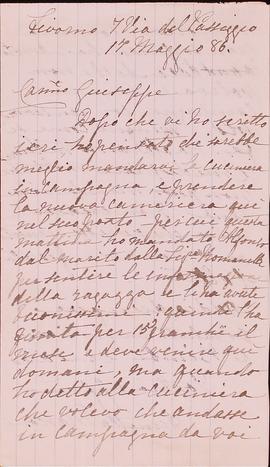 Livorno 7 Via del Passeggio
17. Maggio 86.
Carmo Giuseppe
Dopo che vi ho scritto
ieri ho pensato che sarebbe
meglio mandarvi la cuciniera
in campagna, e prendere
la nuova cameriera qui
nel suo posto percui questa
mattina ho mandato
dal marito dalla Sigra Romanelli
per sentire le
della ragazza e li ha avute
buonissime; quindi ha
per 15 franchi il
mese e deve venire quì
domani, ma quando
ho detto alla cuciniera
che volevo che andasse
in campagna da voi